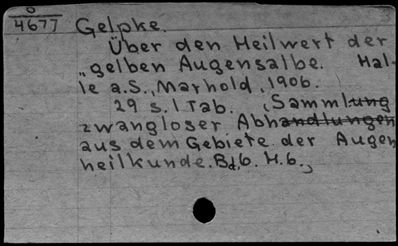 O
4677 Gelpke.
Über den Heilwert der
„gelben Augensalbe. Hal-
le a.S., Marhold, 1906.
29 S. 1 Tab. (Sammlung
zwangloser Abhandlungen
aus dem Gebiete der Augen
heilkunde. Bd. 6. H. 6.,